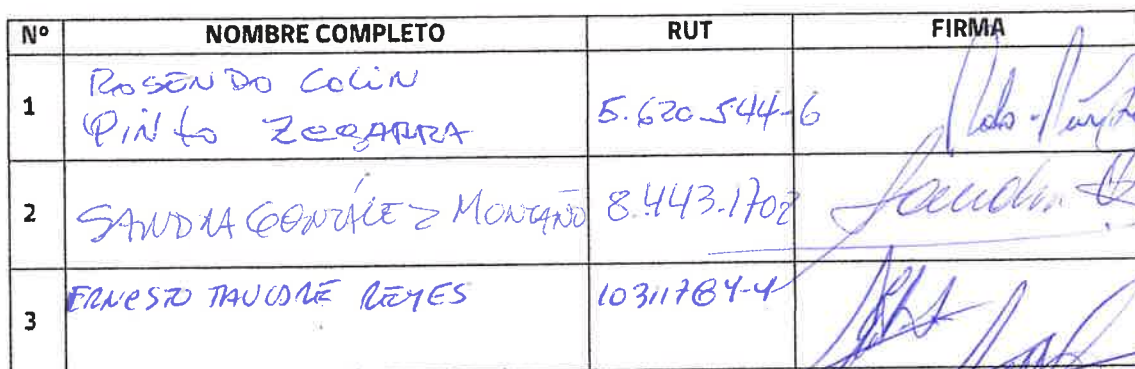 Nº NOMBRE COMPLETO RUT FIRMA
1 ROSENDO COLIN
PINTO ZEGARRA 5.620.544-6
2 SANDRA GONZÁLEZ MONTAÑO 8.443.1702 Sandra
3 ERNESTO REYES 10311784-4